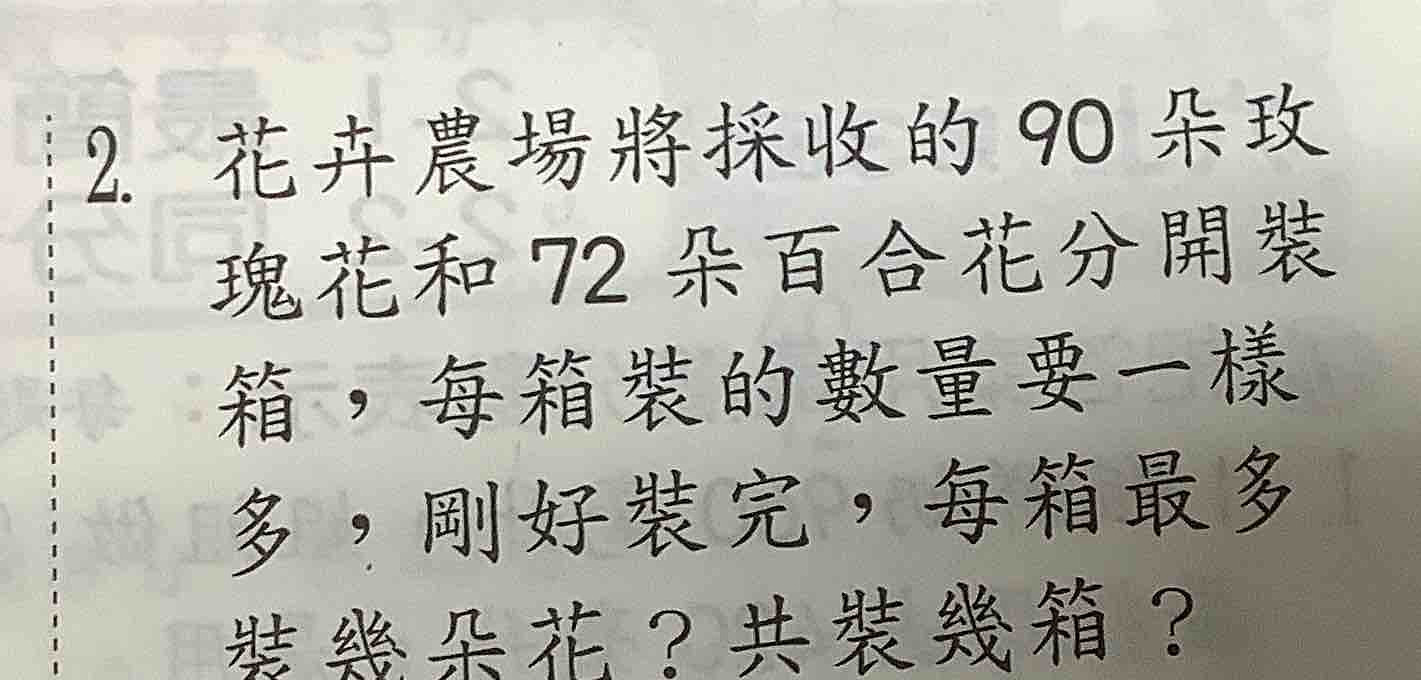 2. 花卉農場將採收的 90 朵玫
瑰花和 72 朵百合花分開裝
箱，每箱裝的數量要一樣
多，剛好裝完，每箱最多
裝幾朵花？共裝幾箱？